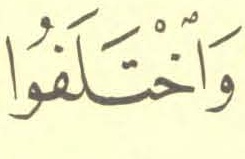 وَاْخْتَلَفُوا